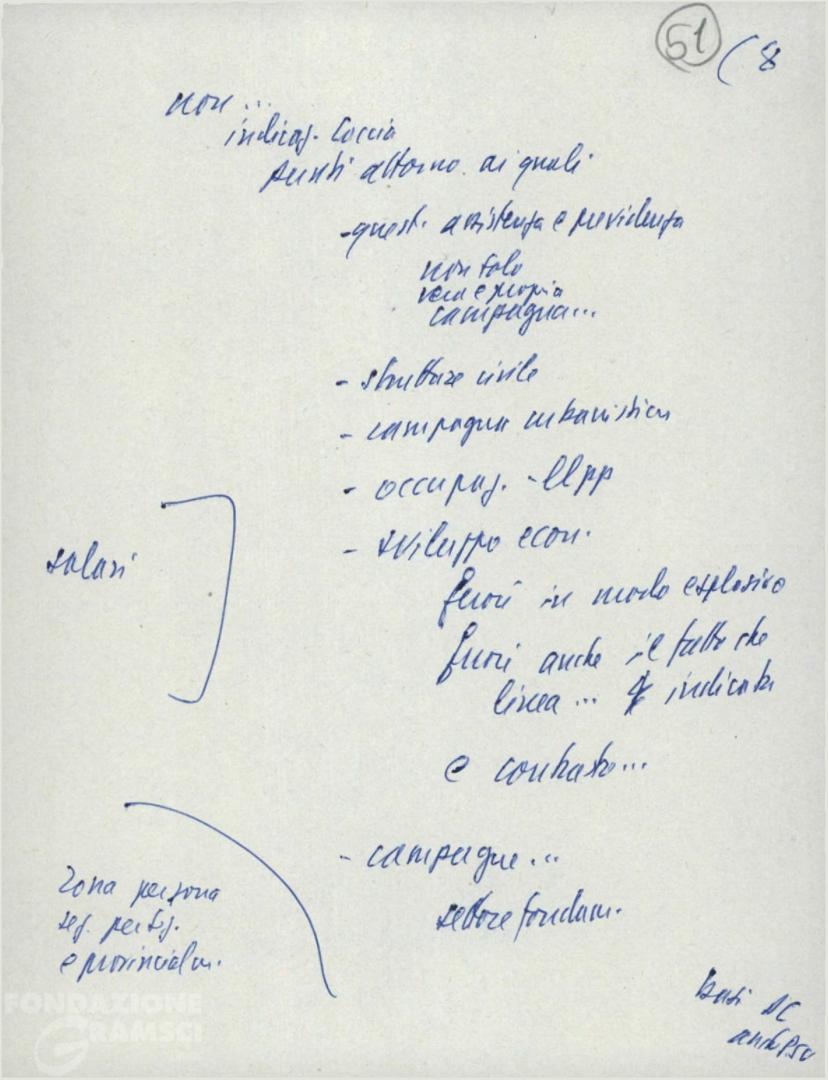 51 (8
non...
indicaz. Coccia
punti attorno ai quali
- quest. assistenza e previdenza
non solo
vera e propria
campagna...
- strutture civile
- campagna urbanistica
- occupaz. - ll pp
- sviluppo econ.
salari
fuori in modo esplosivo
fuori anche il fatto che
linea... indicata
e contrasto...
- campagne...
settore fondam.
zona per zona
sez. per sez.
e provincialm.
basi DC
anche PSU
FONDAZIONE
GRAMSCI